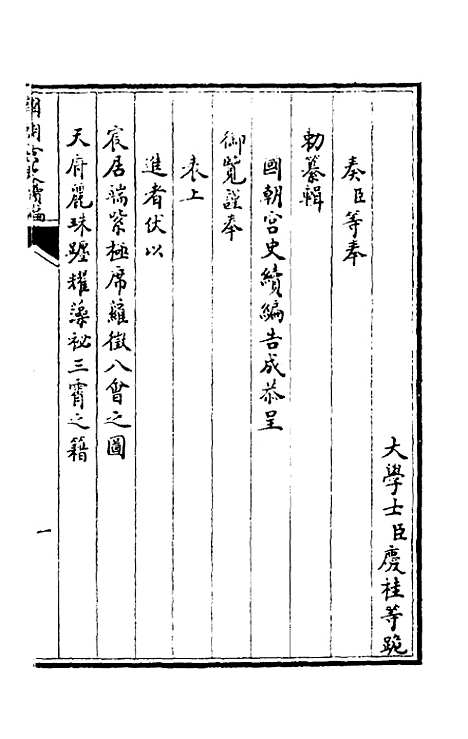 大學士臣慶桂等跪
奏臣等奉
勅纂輯
國朝宮史續編告成恭呈
御覽謹奉
表上
進者伏以
宸居端紫極席羅徵八會之圖
天府麗珠躔耀藻祕三霄之籍
國朝宮史續編
一